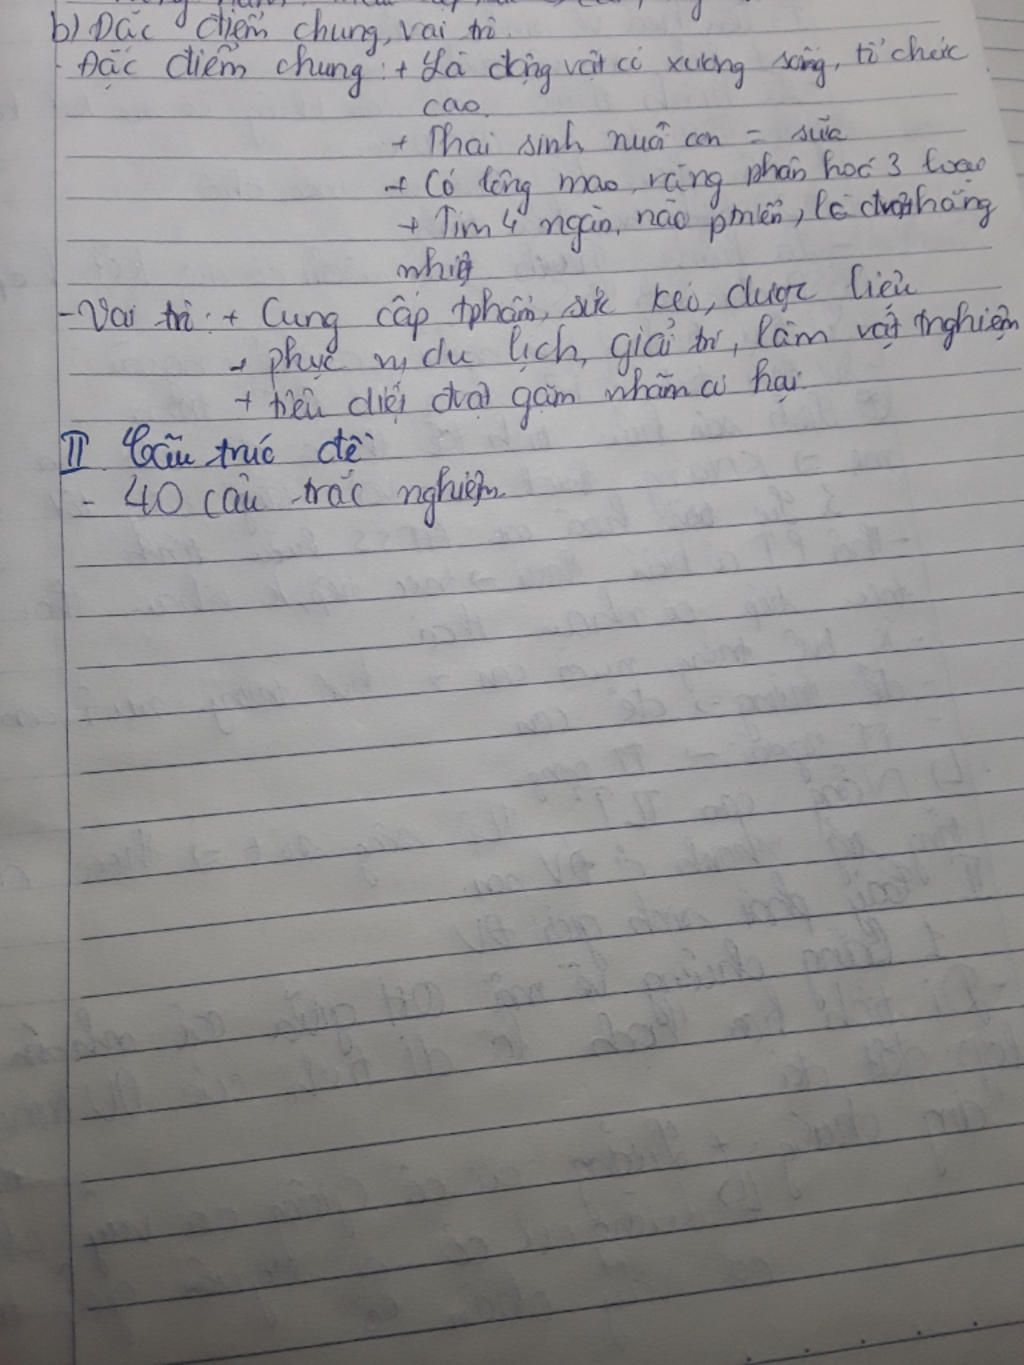 b) Đặc điểm chung, vai trò
- Đặc điểm chung: + Là động vật có xương sống, tổ chức
cao.
+ Thai sinh nuôi con = sữa
+ Có lông mao, răng phân hoá 3 loại
+ Tim 4 ngăn, não ptriển, là đvật hằng
nhiệt
- Vai trò: + Cung cấp tphẩm, sức kéo, dược liệu
+ phục vụ du lịch, giải trí, làm vật tnghiệm
+ tiêu diệt đvật gặm nhấm có hại
II Cấu trúc đề
- 40 câu trắc nghiệm.